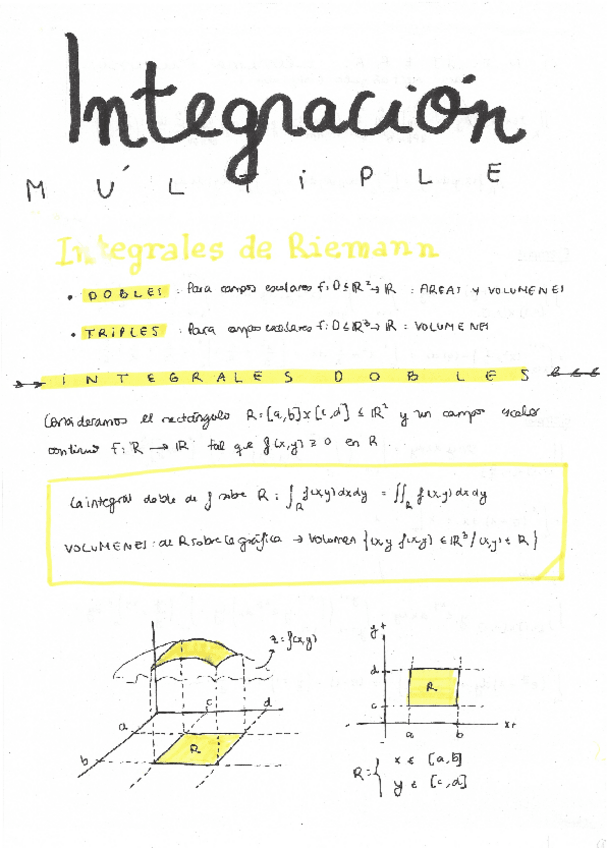 Integración
MÚLTIPLE
Integrales de Riemann
• DOBLES : Para campos escalares f: D ⊆ ℝ² → ℝ : AREAS Y VOLUMENES
• TRIPLES : Para campos escalares f: D ⊆ ℝ³ → ℝ : VOLUMENES
INTEGRALES DOBLES
Consideramos el rectángulo R = [a,b] x [c,d] ⊆ ℝ² y un campo escalar
continuo f: R → ℝ tal que f(x,y) ≥ 0 en R.
La integral doble de f sobre R : ∫_R f(x,y) dxdy = ∬_R f(x,y) dxdy
VOLUMENES : de R sobre la gráfica → Volumen {(x,y f(x,y) ∈ ℝ³/(x,y) ∈ R}
z = f(x,y)
c d
a
R
b
y
d
R
c
a b x
R = { x ∈ [a,b]
y ∈ [c,d]